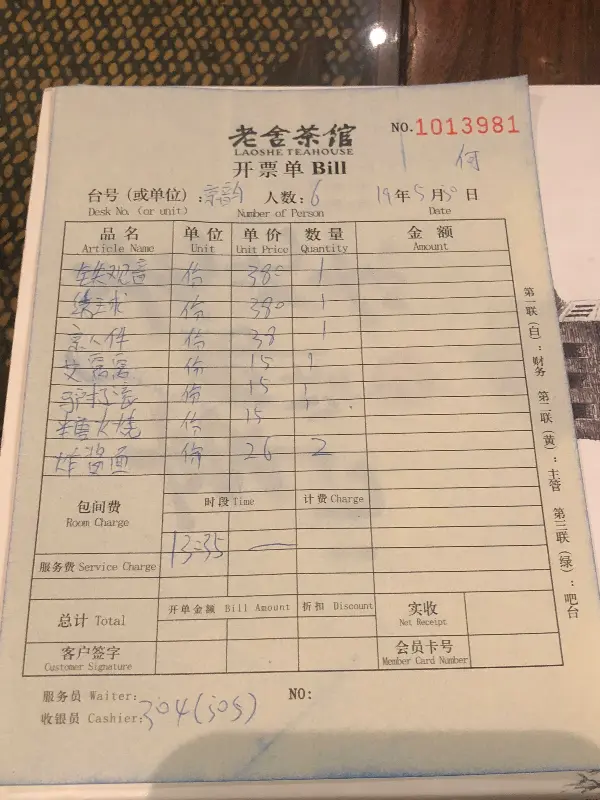 老舍茶馆
LAOSHE TEAHOUSE
NO.1013981
开票单 Bill
何
台号（或单位）: 京韵 人数: 6 19年5月30日
Desk No. (or unit) Number of Person Date
品名 单位 单价 数量 金额
Article Name Unit Unit Price Quantity Amount
铁观音 份 380 1
绣球 份 380 1
京八件 份 38 1
艾窝窝 份 15 1
驴打滚 份 15 1
糖火烧 份 15
炸酱面 份 26 2
包间费 时段 Time 计费 Charge
Room Charge
13:35 —
服务费 Service Charge
总计 Total 开单金额 Bill Amount 折扣 Discount 实收
Net Receipt
客户签字 会员卡号
Customer Signature Member Card Number
服务员 Waiter: NO:
收银员 Cashier: 304(305)
第一联（白）：财务 第二联（黄）：主管 第三联（绿）：吧台